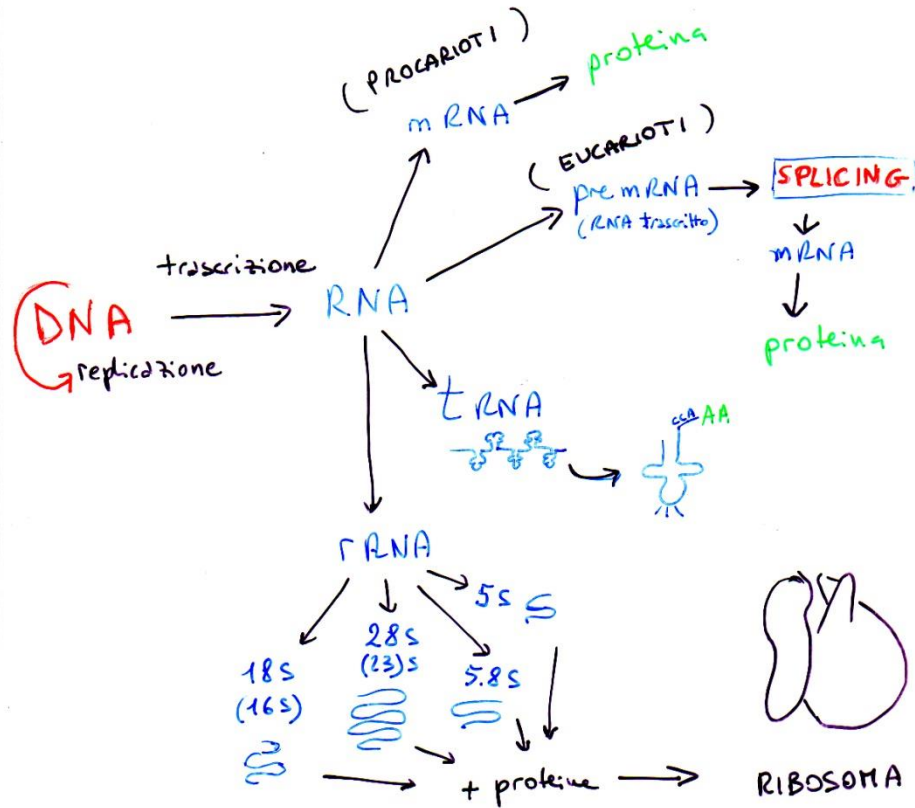 (PROCARIOTI)
mRNA
proteina
(EUCARIOTI)
premRNA
(RNA trascritto)
SPLICING
mRNA
proteina
trascrizione
DNA
RNA
replicazione
tRNA
CCA AA
rRNA
5s
28s
(23)s
18s
(16s)
5.8s
+ proteine
RIBOSOMA